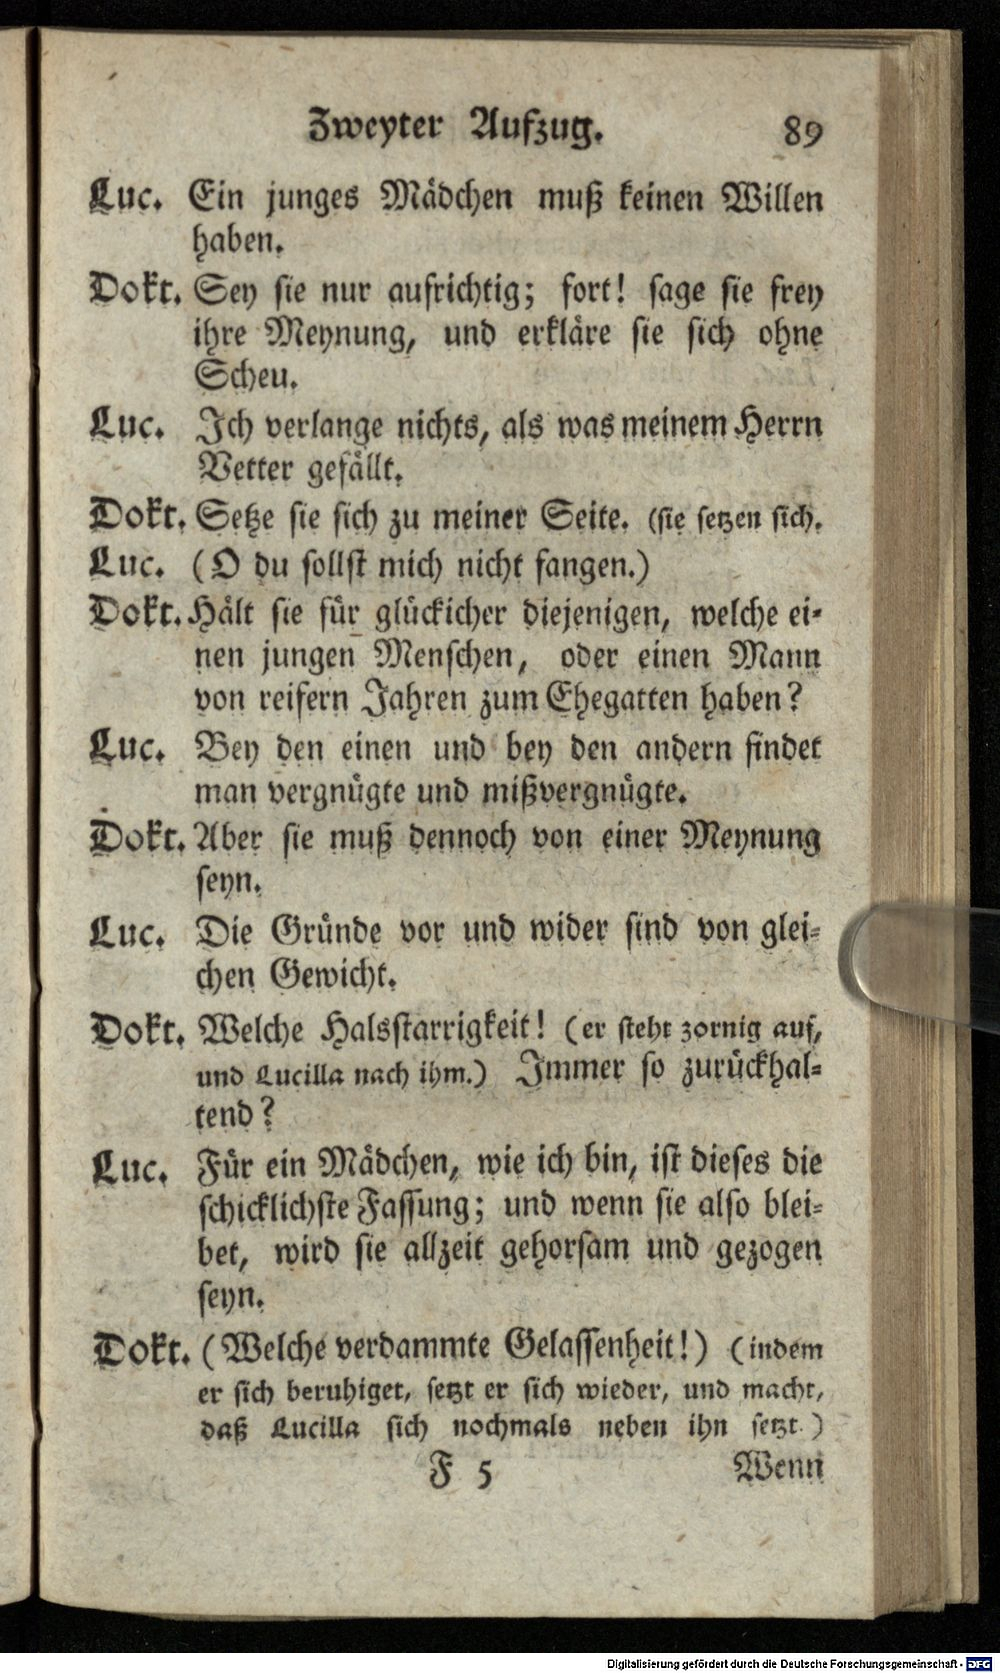 Zweyter Aufzug. 89
Luc. Ein junges Mädchen muß keinen Willen
haben.
Dokt. Sey sie nur aufrichtig; fort! sage sie frey
ihre Meynung, und erkläre sie sich ohne
Scheu.
Luc. Ich verlange nichts, als was meinem Herrn
Vetter gefällt.
Dokt. Setze sie sich zu meiner Seite. (sie setzen sich.
Luc. (O du sollst mich nicht fangen.)
Dokt. Hält sie für glückicher diejenigen, welche ei-
nen jungen Menschen, oder einen Mann
von reifern Jahren zum Ehegatten haben?
Luc. Bey den einen und bey den andern findet
man vergnügte und mißvergnügte.
Dokt. Aber sie muß dennoch von einer Meynung
seyn.
Luc. Die Gründe vor und wider sind von glei-
chen Gewicht.
Dokt. Welche Halsstarrigkeit! (er steht zornig auf,
und Lucilla nach ihm.) Immer so zurückhal-
tend?
Luc. Für ein Mädchen, wie ich bin, ist dieses die
schicklichste Fassung; und wenn sie also blei-
bet, wird sie allzeit gehorsam und gezogen
seyn.
Dokt. (Welche verdammte Gelassenheit!) (indem
er sich beruhiget, setzt er sich wieder, und macht,
daß Lucilla sich nochmals neben ihn setzt.)
F 5 Wenn
Digitalisierung gefördert durch die Deutsche Forschungsgemeinschaft - DFG